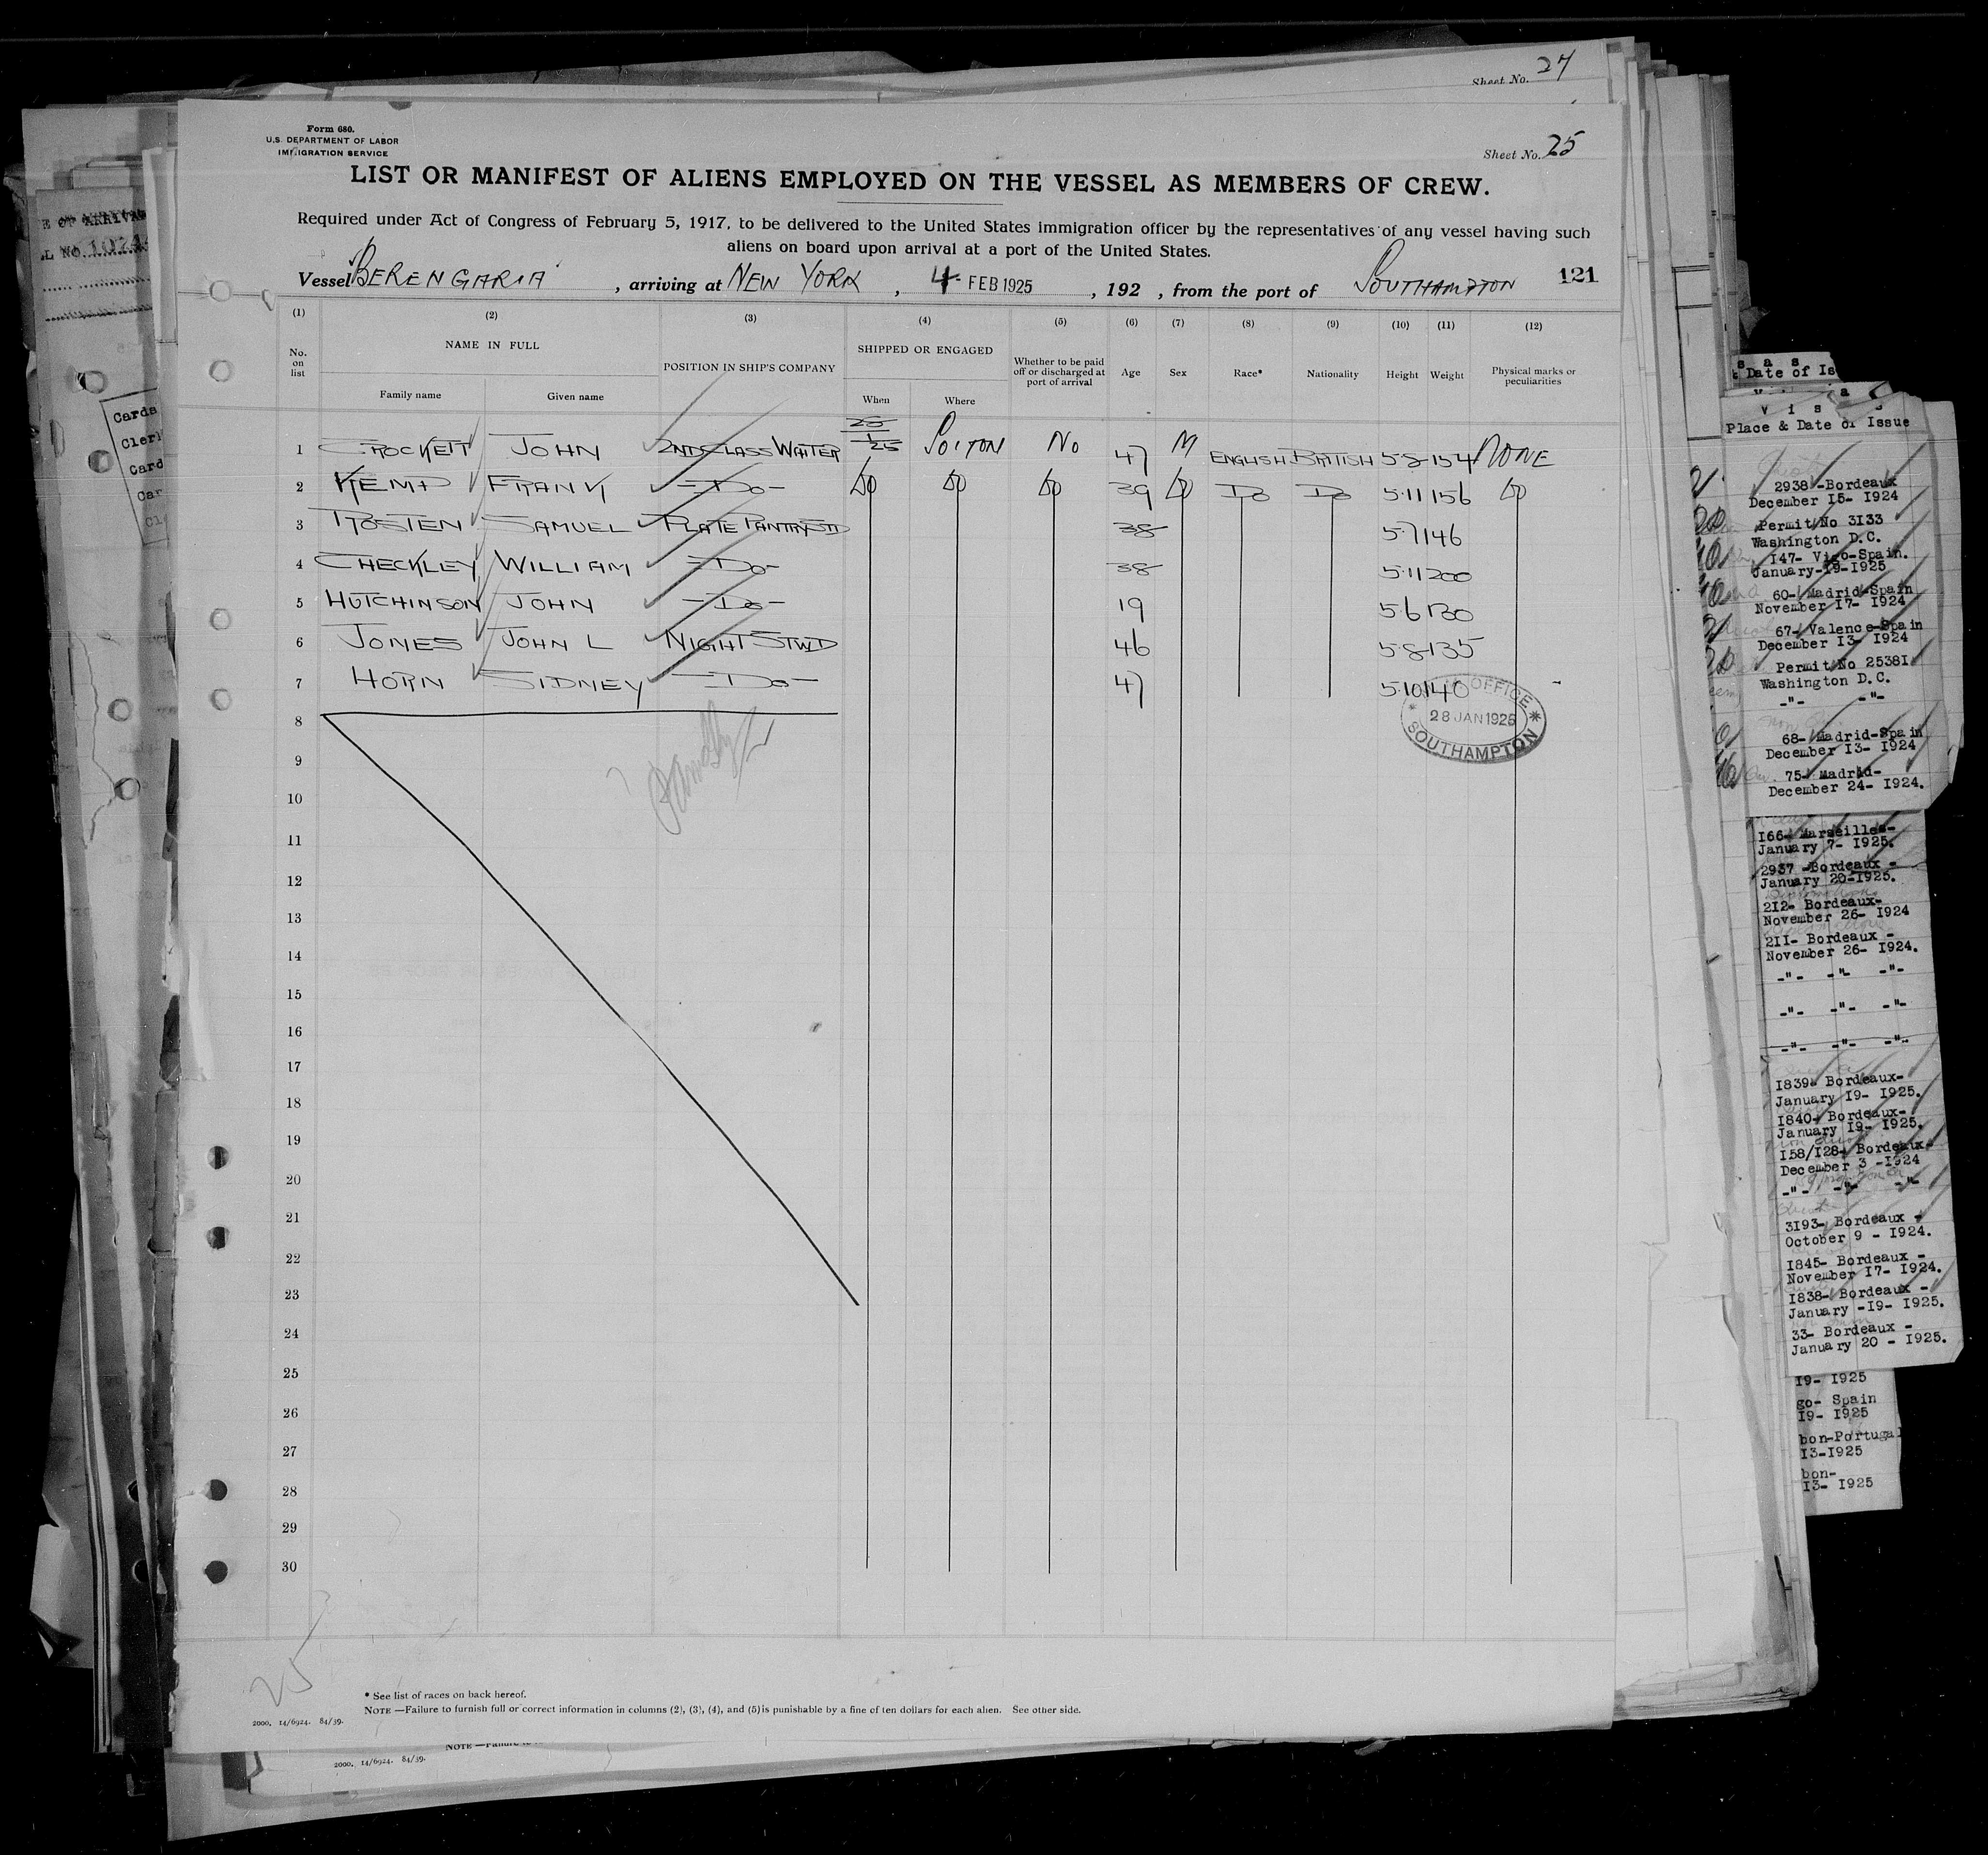 Sheet No. 27
Form 680.
U.S. DEPARTMENT OF LABOR
IMMIGRATION SERVICE
Sheet No. 25
LIST OR MANIFEST OF ALIENS EMPLOYED ON THE VESSEL AS MEMBERS OF CREW.
Required under Act of Congress of February 5, 1917, to be delivered to the United States immigration officer by the representatives of any vessel having such
aliens on board upon arrival at a port of the United States.
Vessel BERENGARIA, arriving at NEW YORK, 4 FEB 1925, 192 , from the port of SOUTHAMPTON 121
(1) (2) (3) (4) (5) (6) (7) (8) (9) (10) (11) (12)
No. on list NAME IN FULL POSITION IN SHIP'S COMPANY SHIPPED OR ENGAGED Whether to be paid off or discharged at port of arrival Age Sex Race* Nationality Height Weight Physical marks or peculiarities
Family name Given name When Where
1 CROCKETT JOHN 2ND CLASS WAITER 25/1/25 SO'TON NO 47 M ENGLISH BRITISH 5-8 154 NONE
2 KEMP FRANK -DO- DO DO DO 39 DO DO DO 5-11 156 DO
3 SAMUEL PLATE PANTRY STD 38 5-7 146
4 CHECKLEY WILLIAM -DO- 38 5-11 200
5 HUTCHINSON JOHN -DO- 19 5-6 130
6 JONES JOHN L NIGHT STWD 46 5-8 135
7 HORN SIDNEY -DO- 47 5-10 140
OFFICE
28 JAN 1925
SOUTHAMPTON
8
9
10
11
12
13
14
15
16
17
18
19
20
21
22
23
24
25
26
27
28
29
30
25
* See list of races on back hereof.
NOTE —Failure to furnish full or correct information in columns (2), (3), (4), and (5) is punishable by a fine of ten dollars for each alien. See other side.
2000. 14/6924. 84/39.
2000. 14/6924. 84/39.
Date of Is
Place & Date of Issue
2938 -Bordeaux
December 15- 1924
Permit No 3133
Washington D.C.
147- Vigo-Spain.
January-19-1925
60- Madrid-Spain
November 17- 1924
67- Valence-Spain
December 13- 1924
Permit No 25381
Washington D.C.
-"- -"-
68- Madrid-Spain
December 13- 1924
75- Madrid-
December 24- 1924.
166- Marseilles-
January 7- 1925.
2937 -Bordeaux -
January 20-1925.
212- Bordeaux-
November 26- 1924
211- Bordeaux -
November 26- 1924.
-"- -"- -"-
-"- -"- -"-
-"- -"- -"-
1839- Bordeaux-
January 19- 1925.
1840- Bordeaux-
January 19- 1925.
158/128- Bordeaux-
December 3 -1924
-"- -"- -"-
3193- Bordeaux -
October 9 - 1924.
1845- Bordeaux -
November 17- 1924.
1838- Bordeaux -
January -19- 1925.
33- Bordeaux -
January 20 - 1925.
19- 1925
go- Spain
19- 1925
bon-Portugal
13-1925
bon-
13- 1925